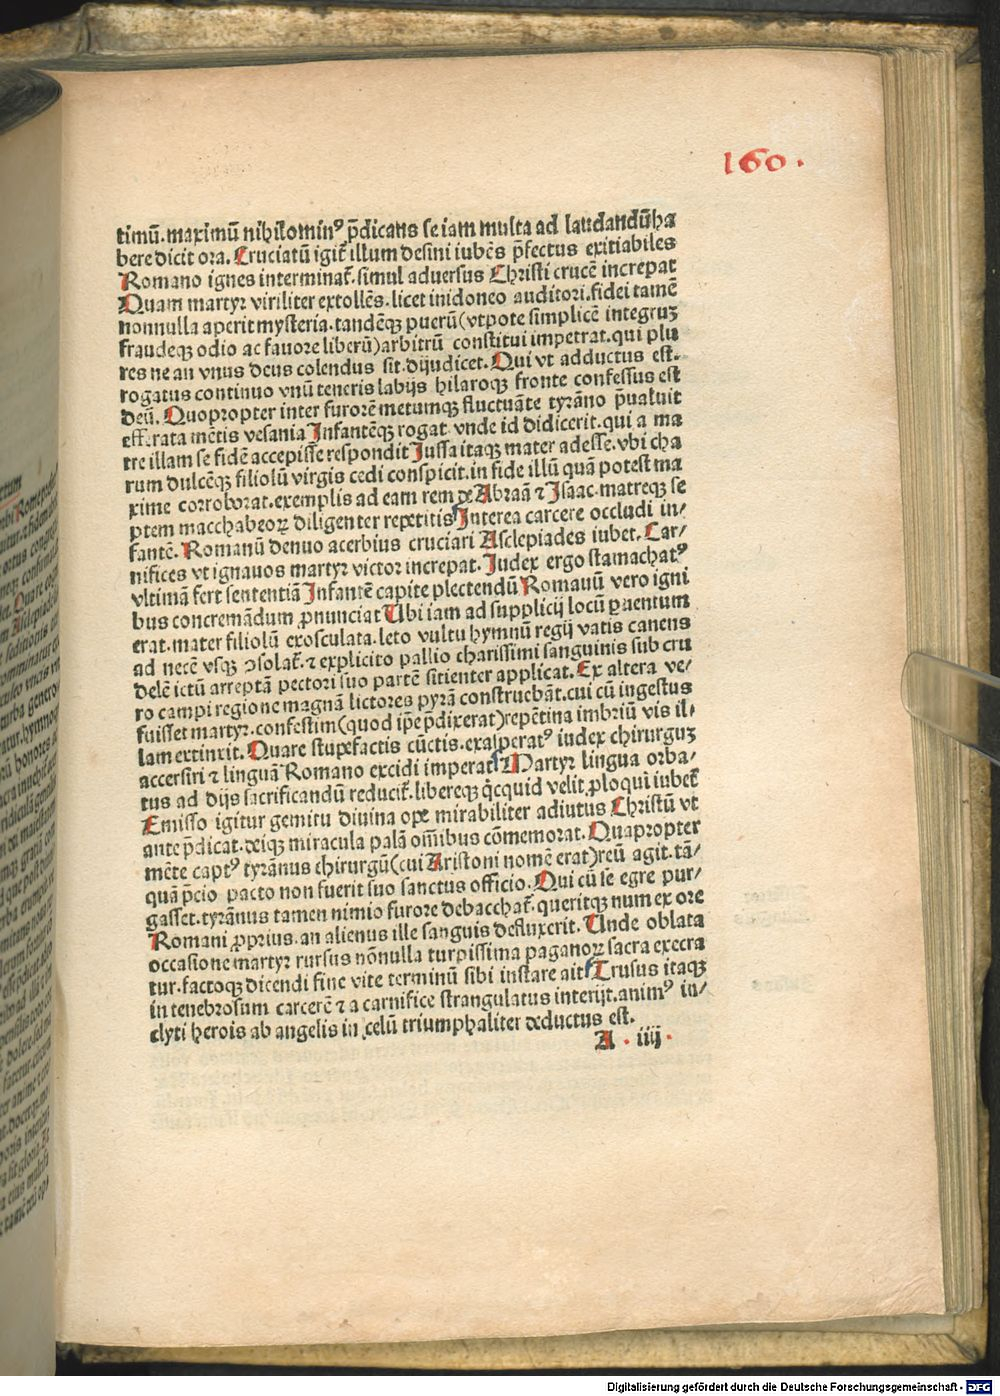 160.
timū. maximū nihilominꝰ p̄dicans se iam multa ad laudandū ha
bere dicit ora. Cruciatū igit̄ illum desini iubēs p̄fectus exitiabiles
Romano ignes interminat̄. simul aduersus Christi crucē increpat
Quam martyr viriliter extollēs. licet inidoneo auditori. fidei tamē
nonnulla aperit mysteria. tandēqꝫ puerū (vtpote simplicē integruꝫ
fraudeqꝫ odio ac fauore liberū) arbitrū constitui impetrat. qui plu
res ne an vnus deus colendus sit. dijudicet. Qui vt adductus est.
rogatus continuo vnū teneris labijs hilaroqꝫ fronte confessus est
deū. Quopropter inter furorē metumqꝫ fluctuāte tyrāno p̄ualuit
efferata mētis vesania Infantēqꝫ rogat vnde id didicerit. qui a ma
tre illam se fidē accepisse respondit Jussa itaqꝫ mater adesse. vbi cha
rum dulcēqꝫ filiolū virgis cedi conspicit. in fide illū quā potest ma
xime corroborat. exemplis ad eam rem de Abraā ⁊ Isaac. matreqꝫ se
ptem macchabeoꝝ diligenter repetitis Interea carcere occludi in/
fantē. Romanū denuo acerbius cruciari Asclepiades iubet. Car/
nifices vt ignauos martyr victor increpat. Judex ergo stamachatꝰ
vltimā fert sententiā Infantē capite plectendū Romanū vero igni
bus concremādum ꝓnunciat Ubi iam ad supplicij locū ꝑuentum
erat. mater filiolū exosculata. leto vultu hymnū regij vatis canens
ad necē vsqꝫ ↄsolat̄. ⁊ explicito pallio charissimi sanguinis sub cru
delē ictū arreptā pectori suo partē sitienter applicat. Ex altera ve/
ro campi regione magnā lictores pyrā construebāt. cui cū ingestus
fuisset martyr. confestim (quod ip̄e p̄dixerat) repētina imbriū vis il/
lam extinxit. Quare stupefactis cūctis. exasperatꝰ iudex chirurguꝫ
accersiri ⁊ linguā Romano excidi imperat Martyr lingua orba/
tus ad dijs sacrificandū reducit̄. libereqꝫ q̇cquid velit ꝓloqui iubet̄
Emisso igitur gemitu diuina ope mirabiliter adiutus Christū vt
ante p̄dicat. deiqꝫ miracula palā om̄ibus cōmemorat. Quapropter
mēte captꝰ tyrānus chirurgū (cui Aristoni nomē erat) reū agit. tā/
quā p̄cio pacto non fuerit suo sanctus officio. Qui cū se egre pur/
gasset. tyrānus tamen nimio furore debacchat̄. queritqꝫ num ex ore
Romani ꝓprius. an alienus ille sanguis defluxerit. Unde oblata
occasione martyr rursus nōnulla turpissima paganoꝝ sacra execra
tur. factoqꝫ dicendi fine vite terminū sibi instare ait Trusus itaqꝫ
in tenebrosum carcerē ⁊ a carnifice strangulatus interijt. animꝰ in/
clyti herois ab angelis in celū triumphaliter deductus est.
A . iiij .
Digitalisierung gefördert durch die Deutsche Forschungsgemeinschaft - DFG